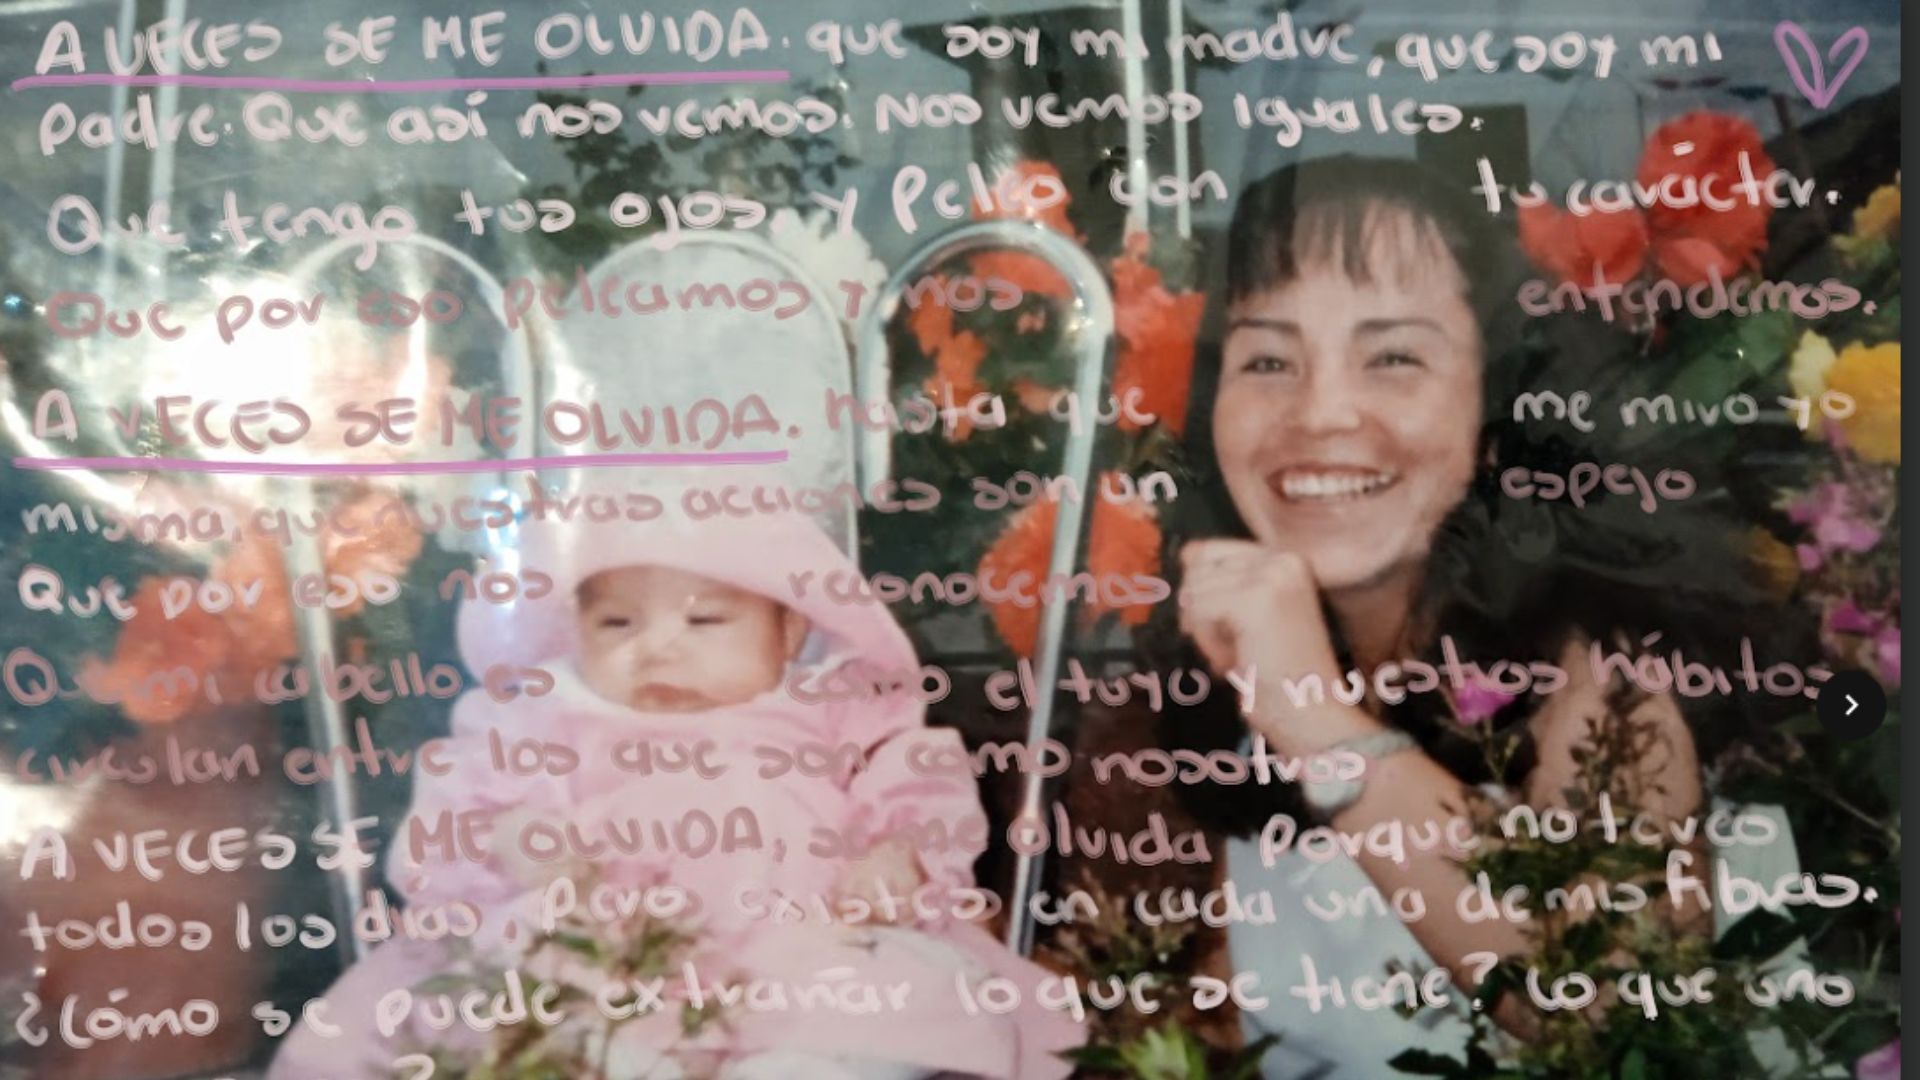 A VECES SE ME OLVIDA. que soy mi madre, que soy mi
Padre. Que así nos vemos. Nos vemos iguales.
Que tengo tus ojos, y Peleo con tu carácter.
Que por eso peleamos y nos entendemos.
A VECES SE ME OLVIDA. hasta que me miro yo
misma, que nuestras acciones son un espejo
Que por eso nos reconocemos
Que mi cabello es como el tuyo y nuestros hábitos
circulan entre los que son como nosotros
A VECES SE ME OLVIDA, se me olvida porque no te veo
todos los días, Pero existes en cada una de mis fibras.
¿Cómo se puede extrañar lo que se tiene? Lo que uno